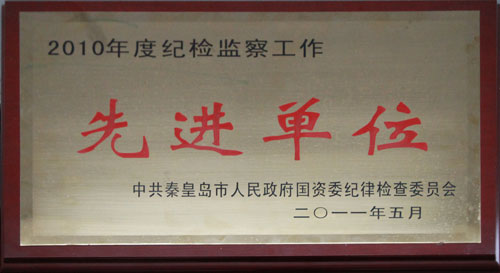 2010年度纪检监察工作
先进单位
中共秦皇岛市人民政府国资委纪律检查委员会
二〇一一年五月